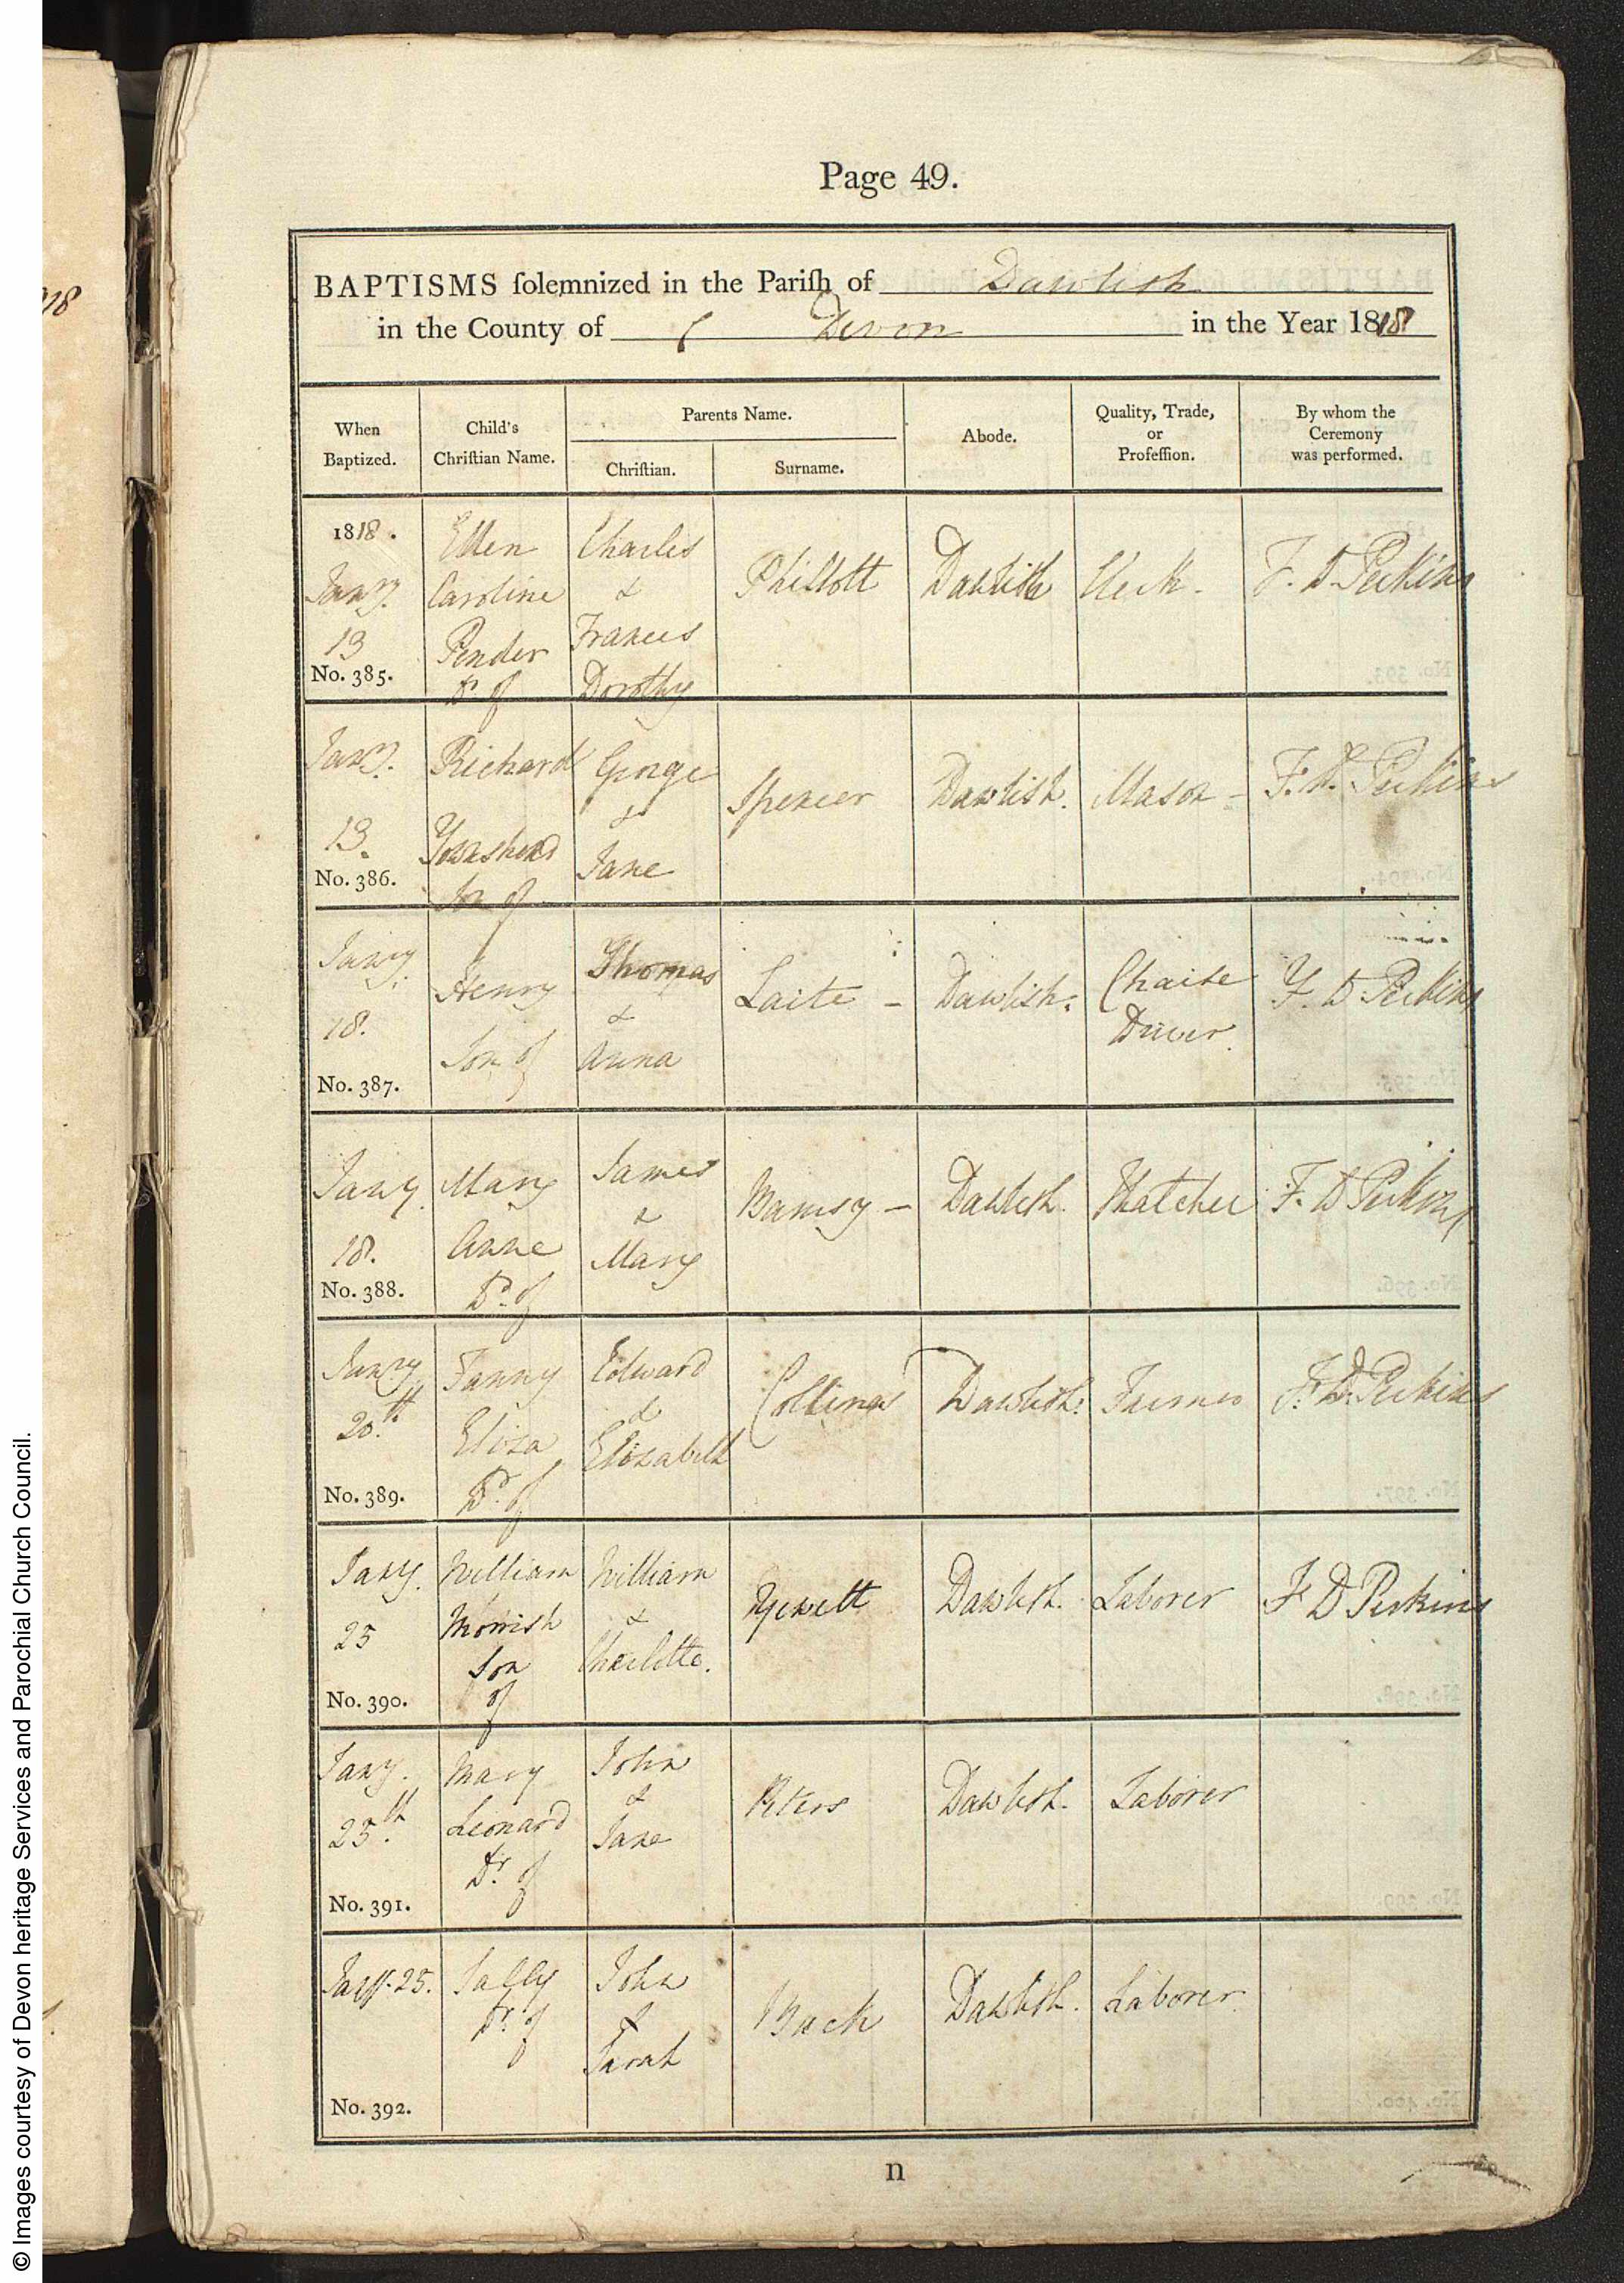 Page 49.
BAPTISMS ſolemnized in the Pariſh of Dawlish
in the County of Devon in the Year 1818
When
Baptized.
Child's
Chriſtian Name.
Parents Name.
Chriſtian.
Surname.
Abode.
Quality, Trade,
or
Profeſſion.
By whom the
Ceremony
was performed.
1818.
Jany.
13
No. 385.
Ellen
Caroline
Pender
Dr of
Charles
&
Frances
Dorothy
Phillott
Dawlish
F. D. Perkins
Jany.
13.
No. 386.
Richard
Townshend
Son of
George
&
Jane
Spencer
Dawlish.
Mason -
F. D. Perkins
Jany.
18.
No. 387.
Henry
Son of
Thomas
&
Anna
Laite -
Dawlish.
Chaise
Driver.
F. D. Perkins
Jany.
18.
No. 388.
Mary
Anne
Dr. of
James
&
Mary
Dawlish.
Thatcher
F. D Perkins
Jany
20th
No. 389.
Fanny
Eliza
Dr. of
Edward
&
Elizabeth
Collings
Dawlish.
Farmer
F. D. Perkins
Jany.
25
No. 390.
William
Morrish
Son
of
William
&
Charlotte.
Dawlish.
Laborer
F D Perkins
Jany.
25th.
No. 391.
Mary
Leonard
Dr. of
John
&
Jane
Peters
Dawlish.
Laborer
Jany. 25.
No. 392.
Sally
Dr. of
John
&
Sarah
Dawlish.
Laborer.
n
© Images courtesy of Devon heritage Services and Parochial Church Council.